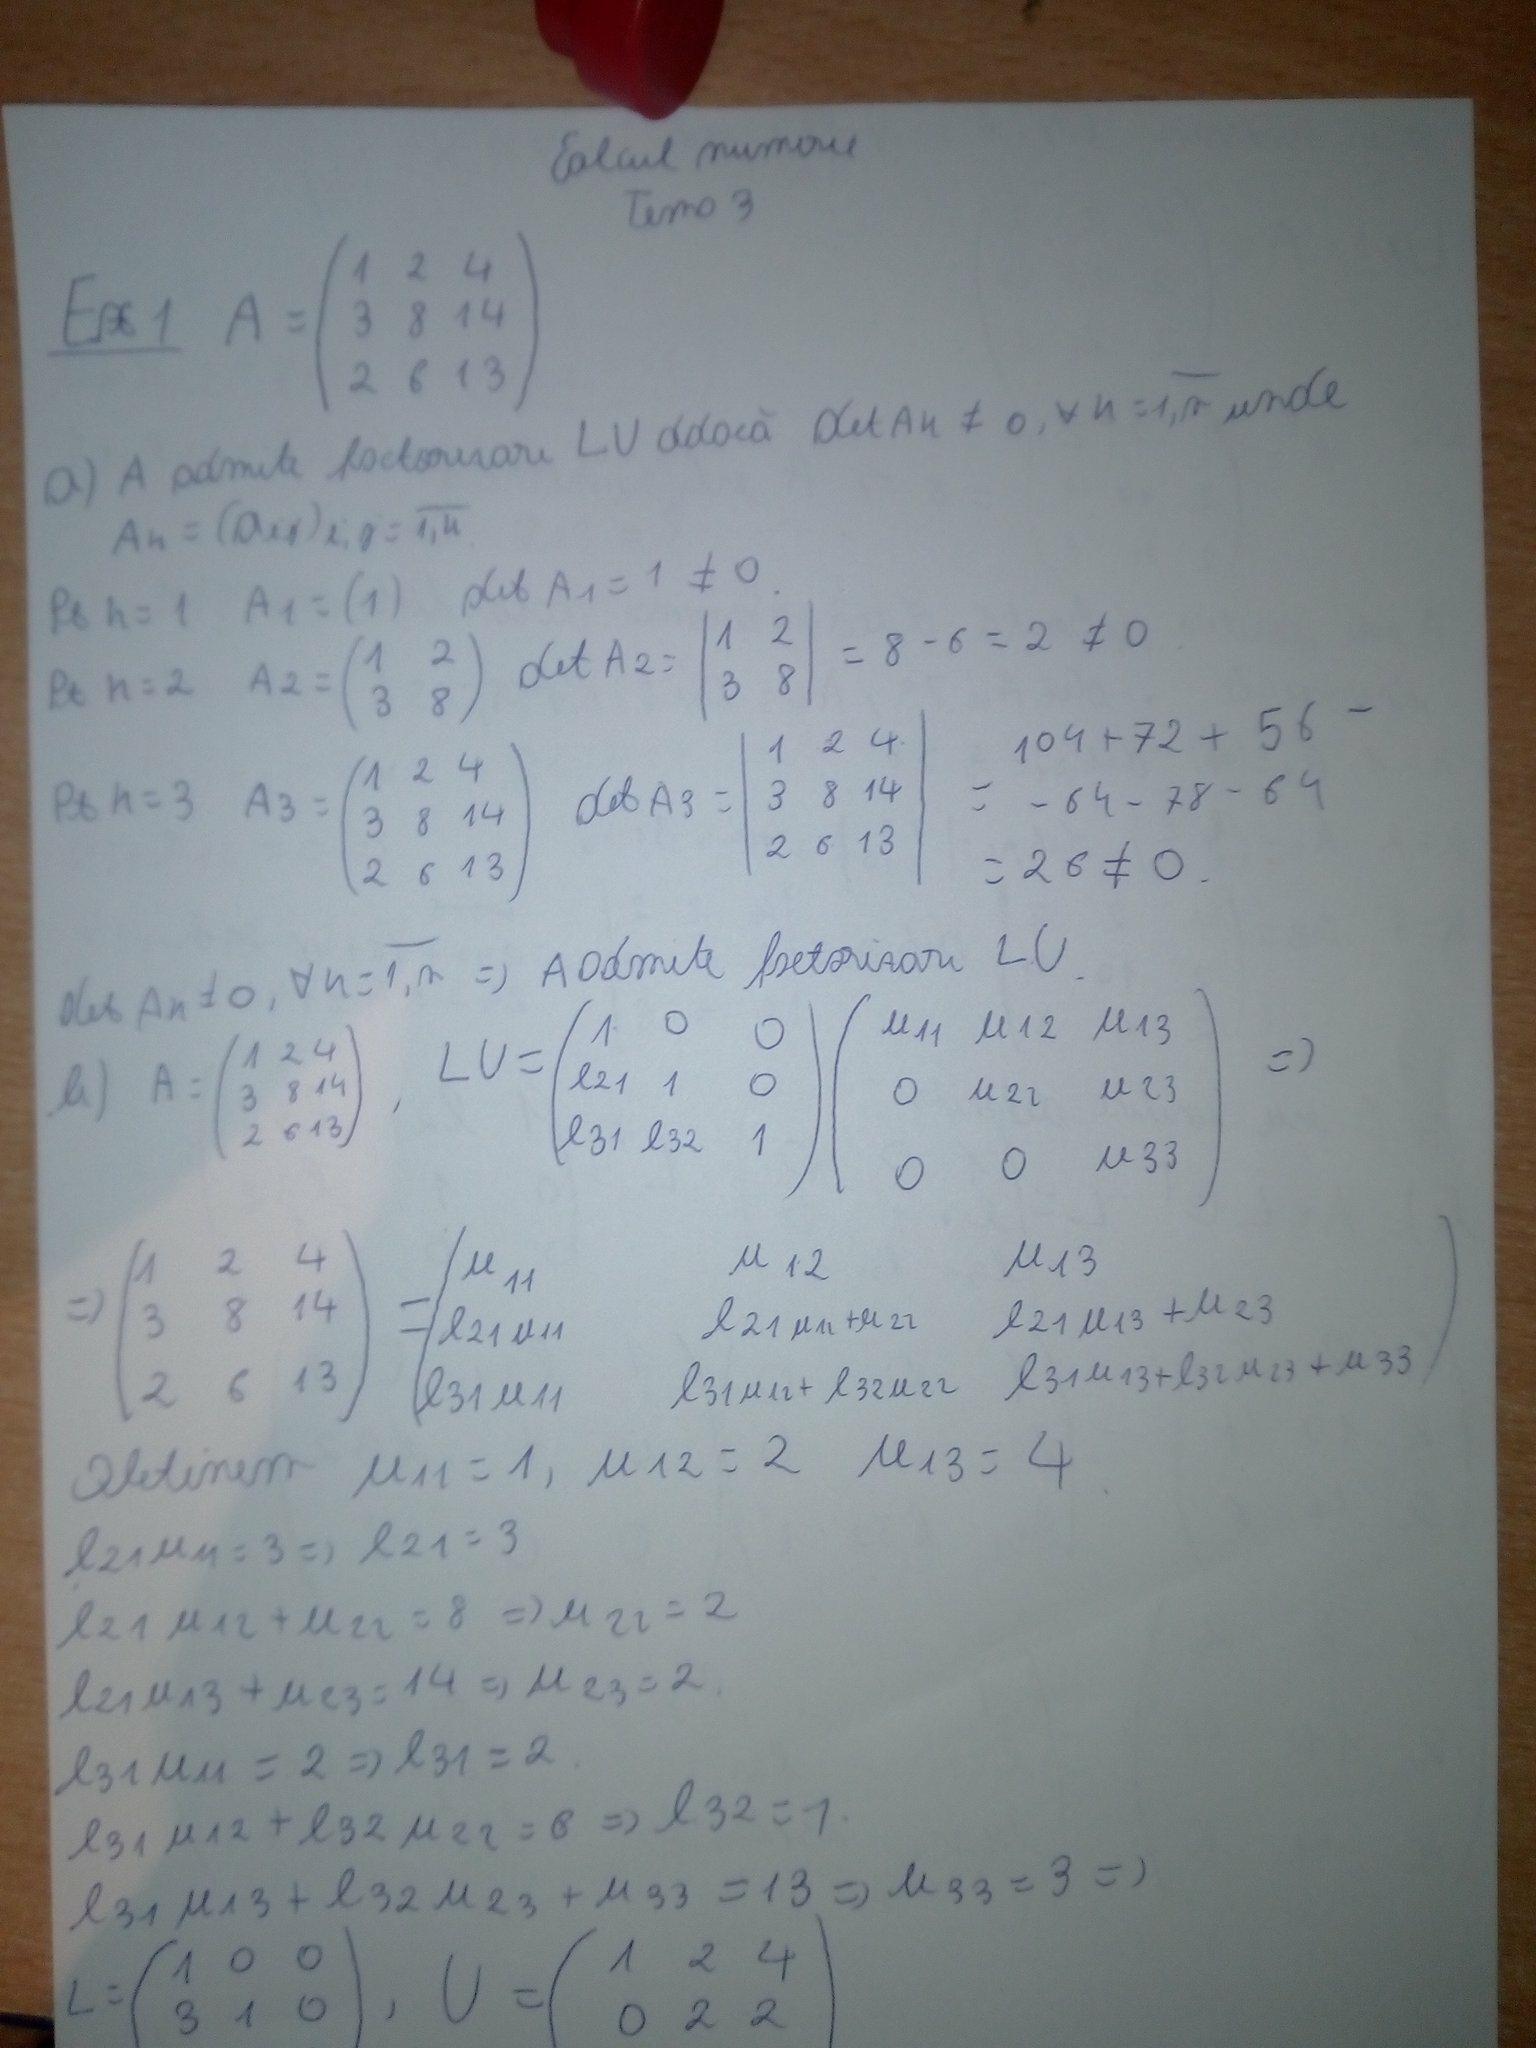 Calcul numeric
Tema 3
Ex 1 A = (1 2 4
3 8 14
2 6 13)
a) A admite factorizare LU ddacă det Ak ≠ 0, ∀ k = 1,n unde
Ak = (aij) i,j = 1,k
Pt k = 1 A1 = (1) det A1 = 1 ≠ 0.
Pt k = 2 A2 = (1 2
3 8) det A2 = |1 2
3 8| = 8 - 6 = 2 ≠ 0.
Pt k = 3 A3 = (1 2 4
3 8 14
2 6 13) det A3 = |1 2 4
3 8 14
2 6 13| = 104 + 72 + 56 -
- 64 - 78 - 64
= 26 ≠ 0.
det Ak ≠ 0, ∀ k = 1,n => A admite factorizare LU.
b) A = (1 2 4
3 8 14
2 6 13), LU = (1 0 0
l21 1 0
l31 l32 1) (u11 u12 u13
0 u22 u23
0 0 u33) =>
=> (1 2 4
3 8 14
2 6 13) = (u11 u12 u13
l21u11 l21u12+u22 l21u13+u23
l31u11 l31u12+l32u22 l31u13+l32u23+u33)
Obtinem u11 = 1, u12 = 2 u13 = 4.
l21u11 = 3 => l21 = 3
l21u12 + u22 = 8 => u22 = 2
l21u13 + u23 = 14 => u23 = 2.
l31u11 = 2 => l31 = 2.
l31u12 + l32u22 = 6 => l32 = 1.
l31u13 + l32u23 + u33 = 13 => u33 = 3 =>
L = (1 0 0
3 1 0), U = (1 2 4
0 2 2)